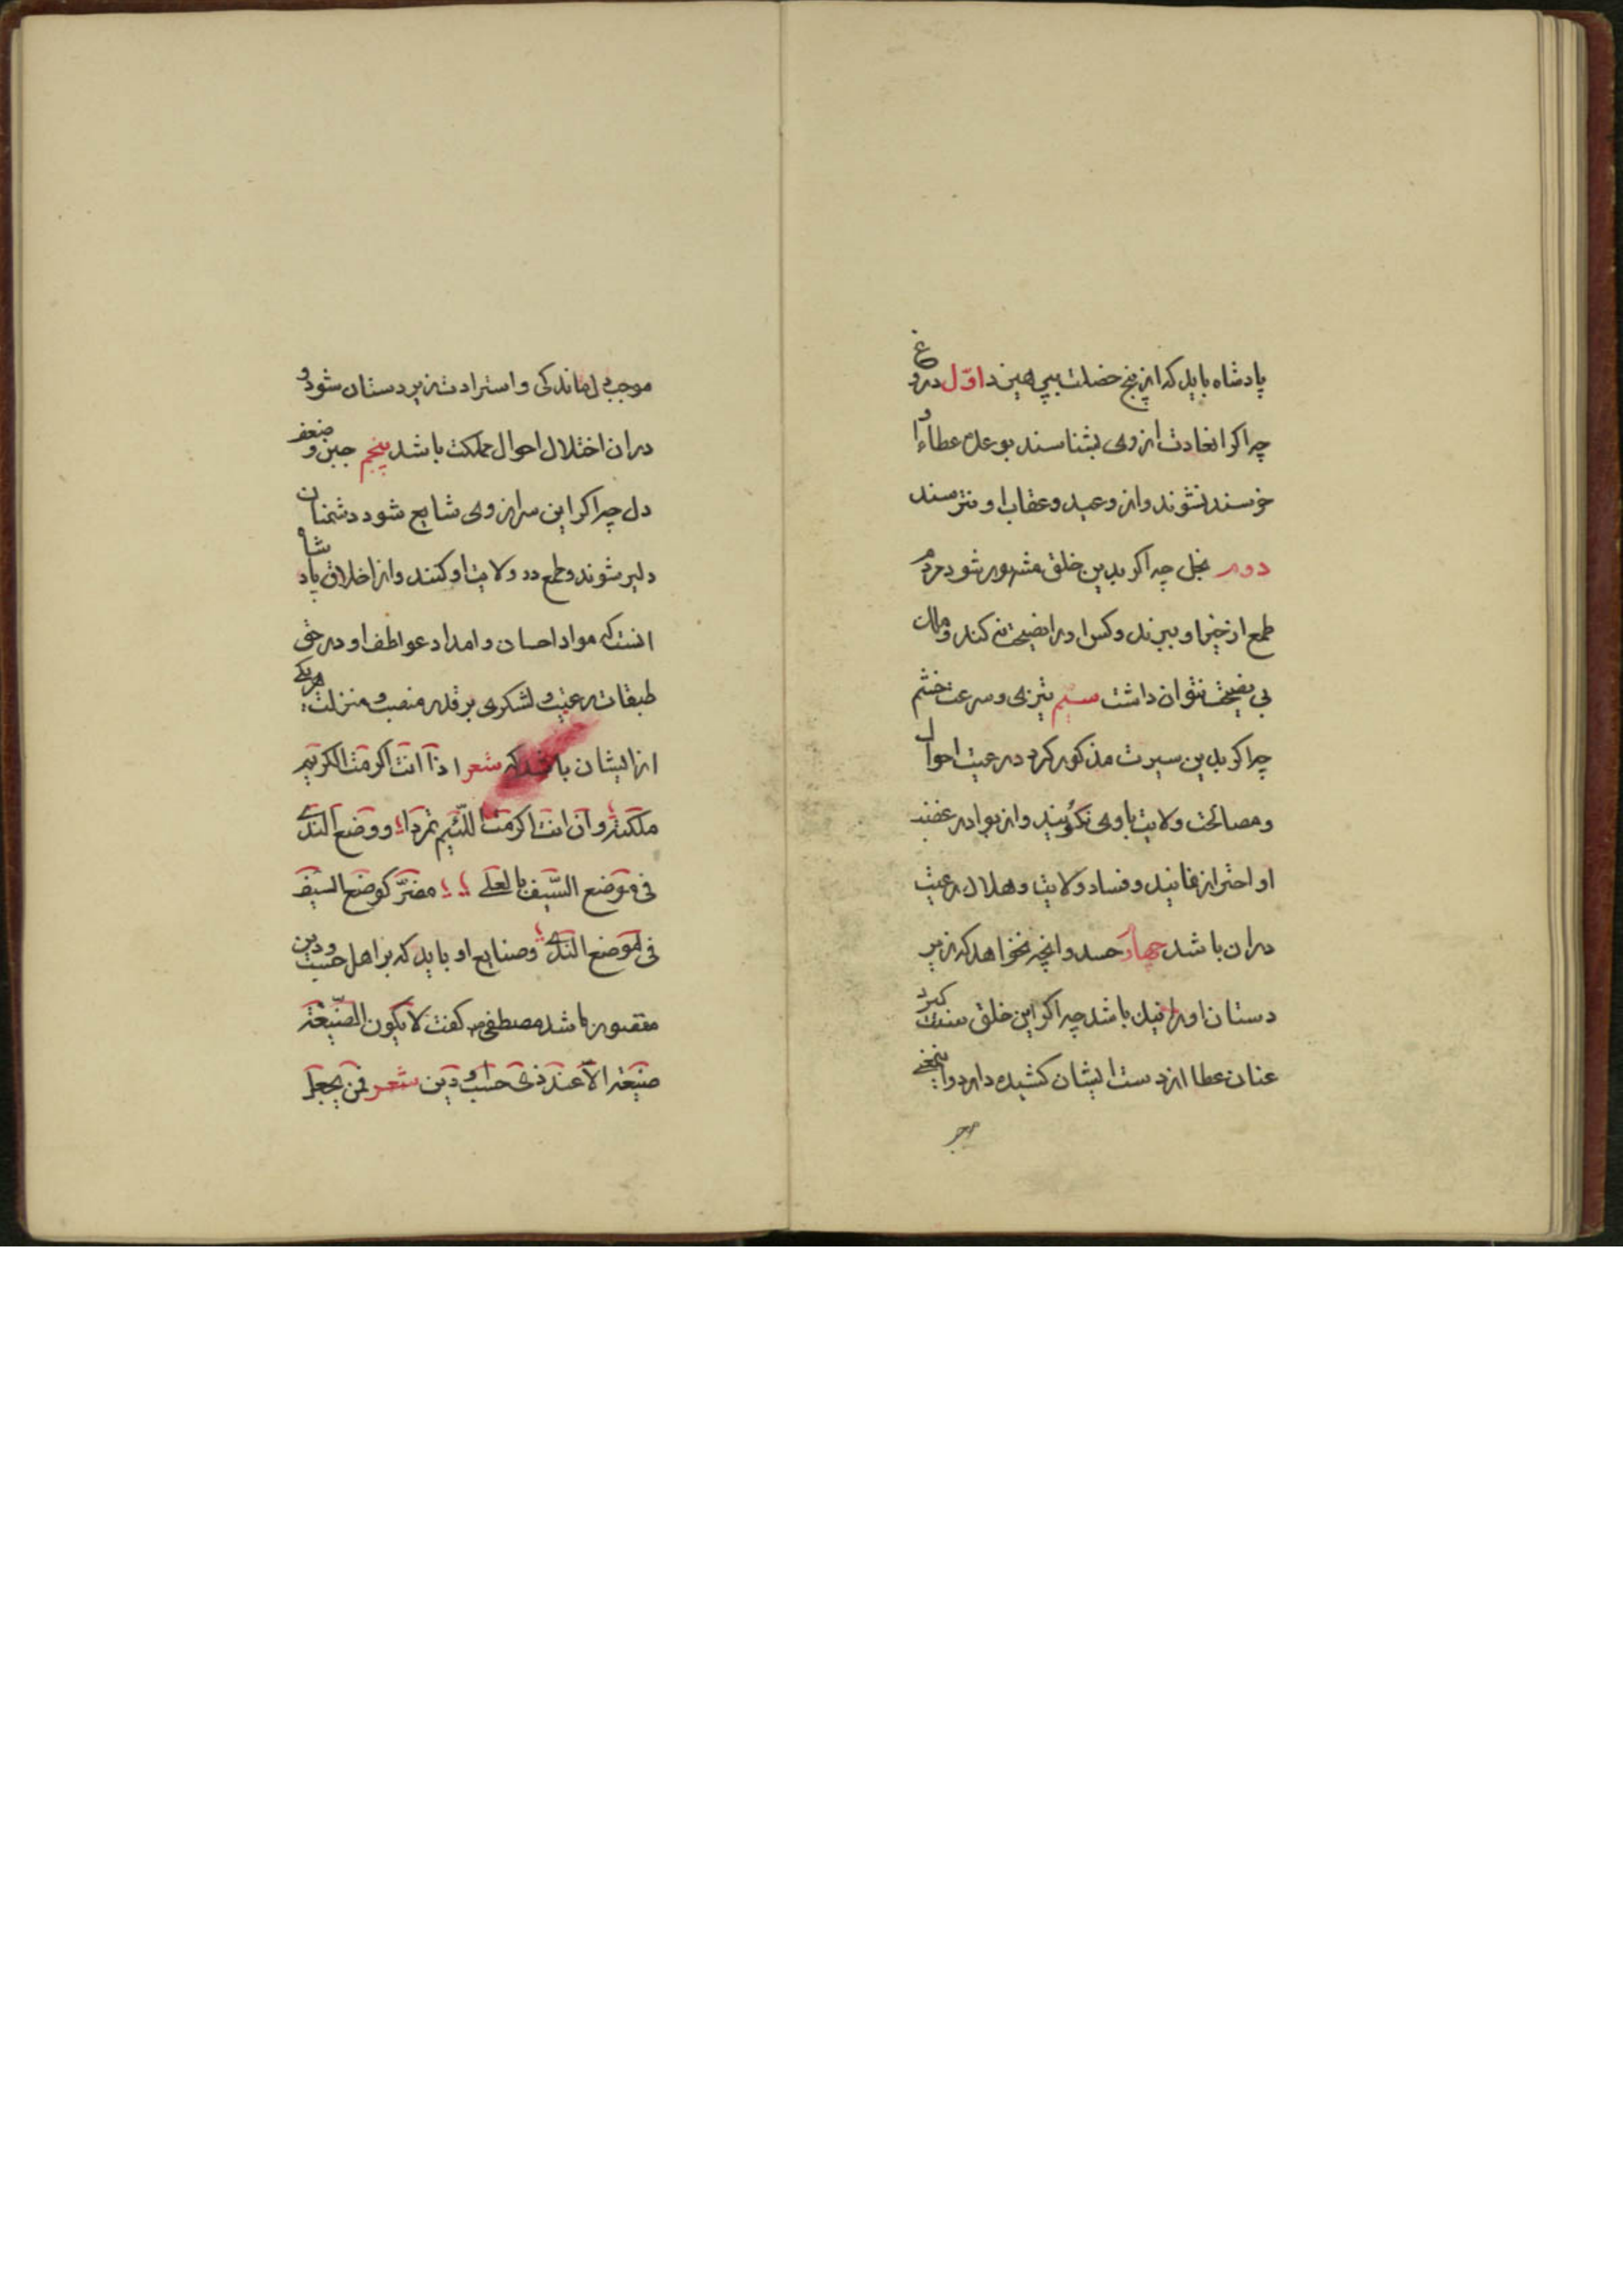 پادشاه باید که از پنج خصلت بپرهیزد اوّل دروغ
چرا کر انعادت از وی بشناسند بوعدۀ عطاء او
خرسند نشوند و از وعید و عقاب او نترسند
دوم بخل چه اکر بدین خلق مشهور شود مردم
طمع از خیر او ببرند و کس او را نصیحت نکند و مال
بی نصیحت نتوان داشت سیّم تیزی و سرعت خشم
چرا کر بدین سیرت مذکور کردد رعیت احوال
و مصالحت ولایت با وی نکویند و از بوادر غضب
او احتراز نمایند و فساد ولایت و هلاک رعیت
دران باشد چهارم حسد و انچه نخواهد که زیر
دستان او را نیک باشد چرا اکر این خلق صفت کیرد
عنان عطا از دست ایشان کشیده دارد و اینمعنی
موجب درماندکی و استرادت زیر دستان شود و
دران اختلال احوال مملکت باشد پنجم جبن و ضعف
دل چرا کر این سر از وی شایع شود دشمنان
دلیر شوند و طمع در ولایت او کنند و از اخلاق پادشاه
انست که مواد احسان و امداد عواطف او در حق
طبقات رعیت و لشکری بر قدر منصب و منزلت هریکی
از ایشان باشد که شعر اذا انت اکرمت الکریم
ملکته وان انت اکرمت اللئیم تمردا ووضع الندی
فی موضع السّیف بالعلی مضرّ کوضع السیف
فی موضع الندی و صنایع او باید که بر اهل حسب و دین
مقصور باشد مصطفی ص کفت لا یکون الصّنیعة
صنیعة الاّ عند ذی حسب او دین شعر فمن یجعل